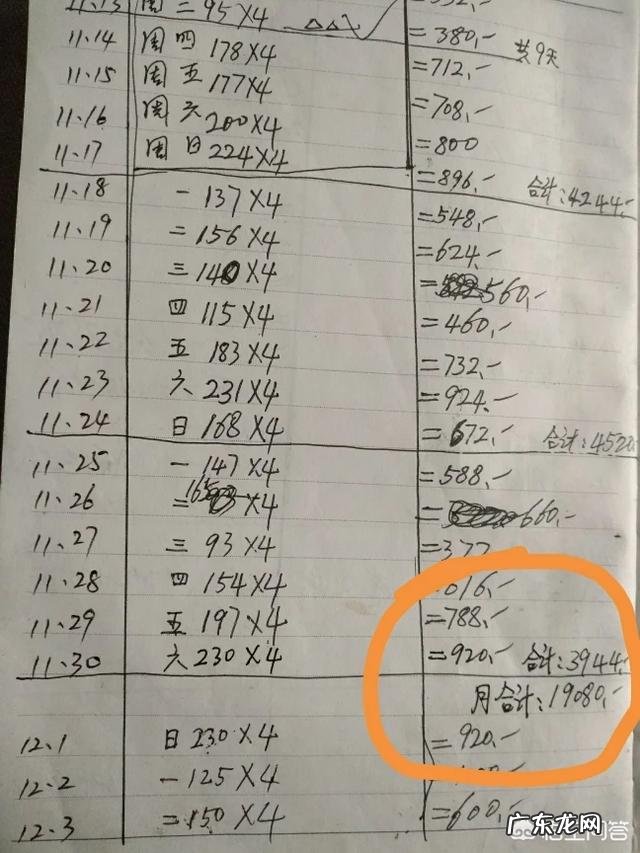 11.13 周三 95X4 =380,- 共9天
11.14 周四 178X4 =712,-
11.15 周五 177X4 =708,-
11.16 周六 200X4 =800
11.17 周日 224X4 =896,- 合计:4244,-
11.18 一 137X4 =548,-
11.19 二 156X4 =624,-
11.20 三 140X4 =560,-
11.21 四 115X4 =460,-
11.22 五 183X4 =732,-
11.23 六 231X4 =924,-
11.24 日 168X4 =672,- 合计:4520,-
11.25 一 147X4 =588,-
11.26 二 165X4 =660,-
11.27 三 93X4
11.28 四 154X4 616,-
11.29 五 197X4 =788,-
11.30 六 230X4 =920,- 合计:3944,-
月合计:19080,-
12.1 日 230X4 =920,-
12.2 一 125X4
12.3 二 150X4 =600,-
广东龙网